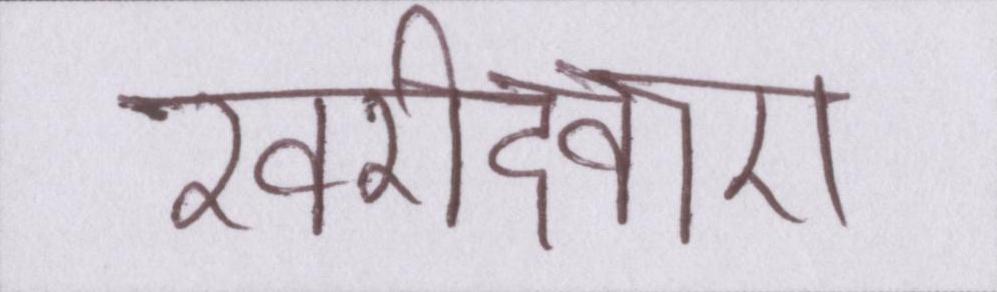 खरीदवाए